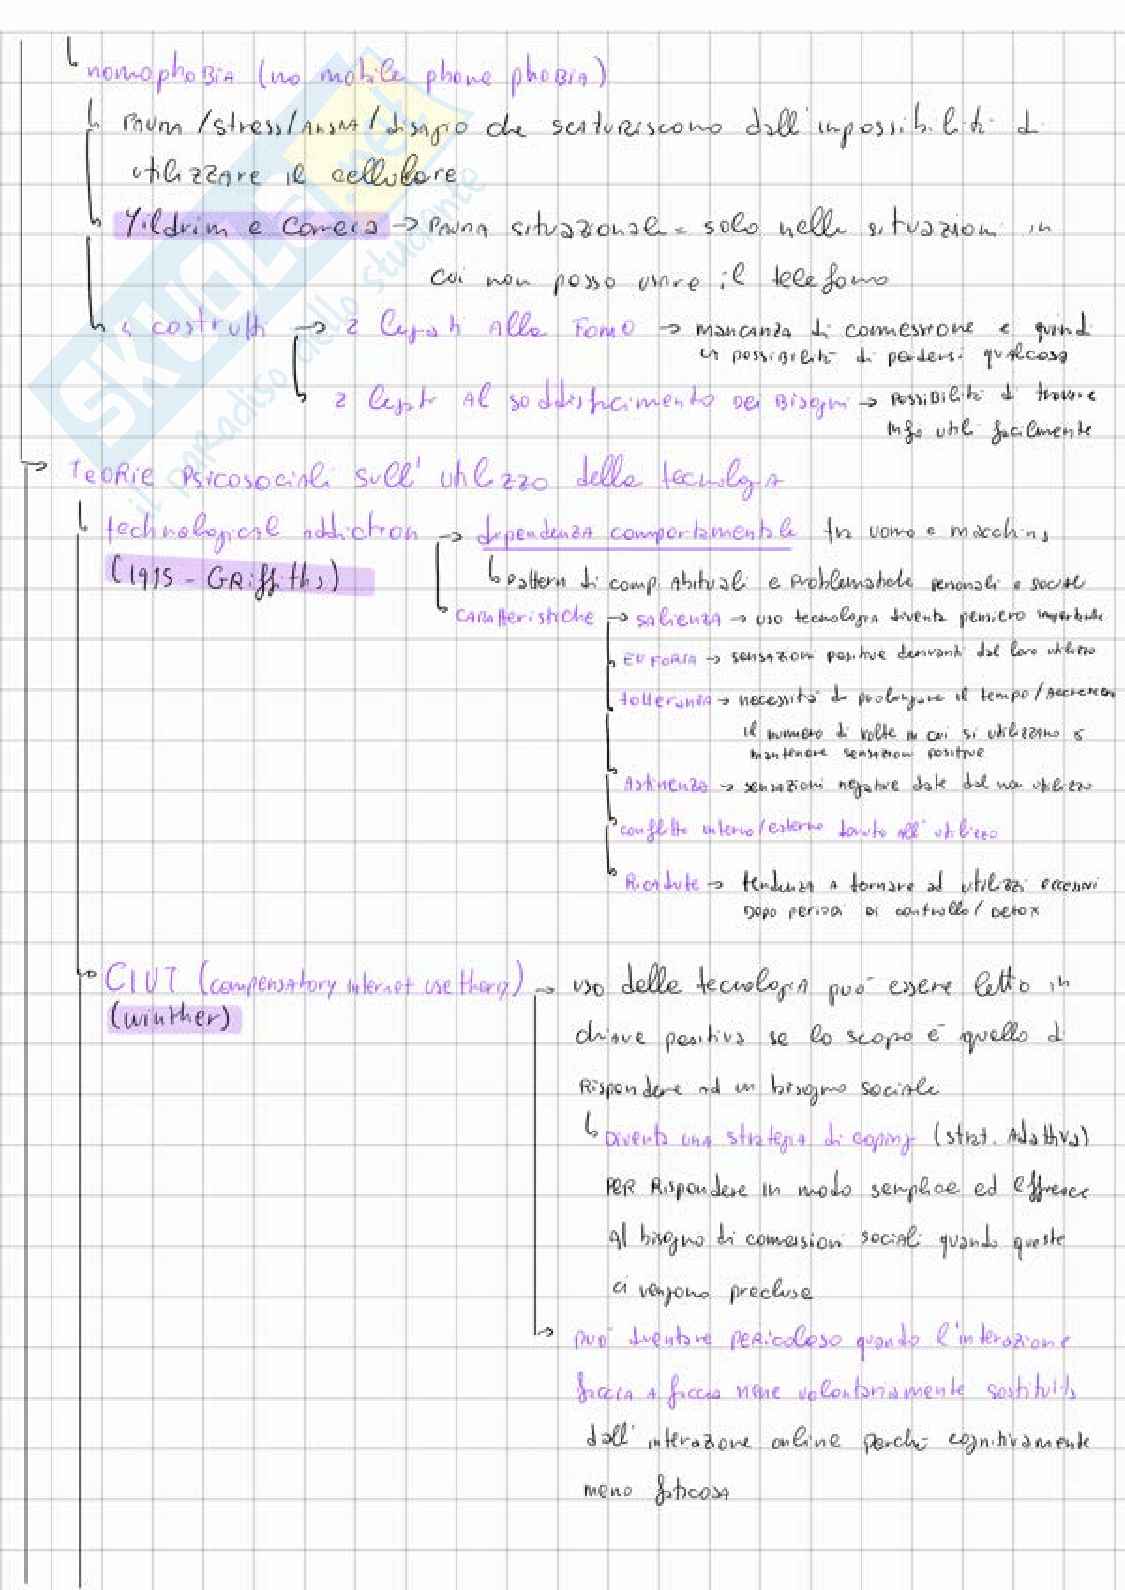 nomophoBiA (no mobile phone phoBIA)
PAURA / stress / ANSIA / disagio che scaturiscono dall'impossibilità di
utilizzare il cellulare
Yildrim e Correia → PAURA situazionale = solo nelle situazioni in
cui non posso usare il telefono
4 costrutti → 2 legati Alla FOMO → mancanza di connessione e quindi
possibilità di perdersi qualcosa
2 legati Al soddisfacimento Dei Bisogni → possibilità di trovare
info utili facilmente
TeORie psicosociali sull'utilizzo della tecnologia
technological addiction → dipendenza comportamentale tra uomo e macchina
(1995 - GRiffiths)
pattern di comp. Abituali e problematiche personali e sociali
CARAtteristiche → SALIENZA → uso tecnologia diventa pensiero importante
EUFORIA → sensazioni positive derivanti dal loro utilizzo
tolleranza → necessità di prolungare il tempo /
il numero di volte in cui si utilizzano x
mantenere sensazioni positive
Astinenza → sensazioni negative date dal non utilizzo
conflitto interno/esterno dovuto all'utilizzo
Ricadute → tendenza a tornare ad utilizzi eccessivi
DOPO periodi DI controllo / DETOX
CIUT (compensatory internet use theory) → uso delle tecnologia può essere letto in
(winther)
chiave positiva se lo scopo è quello di
Rispondere ad un bisogno sociale
Diventa una strategia di coping (strat. Adattiva)
PER Rispondere in modo semplice ed efficace
Al bisogno di connessioni sociali quando queste
ci vengono precluse
può diventare pericoloso quando l'interazione
faccia a faccia viene volontariamente sostituita
dall'interazione online perché cognitivamente
meno faticosa
SKUOLA.net
il paradiso dello studente